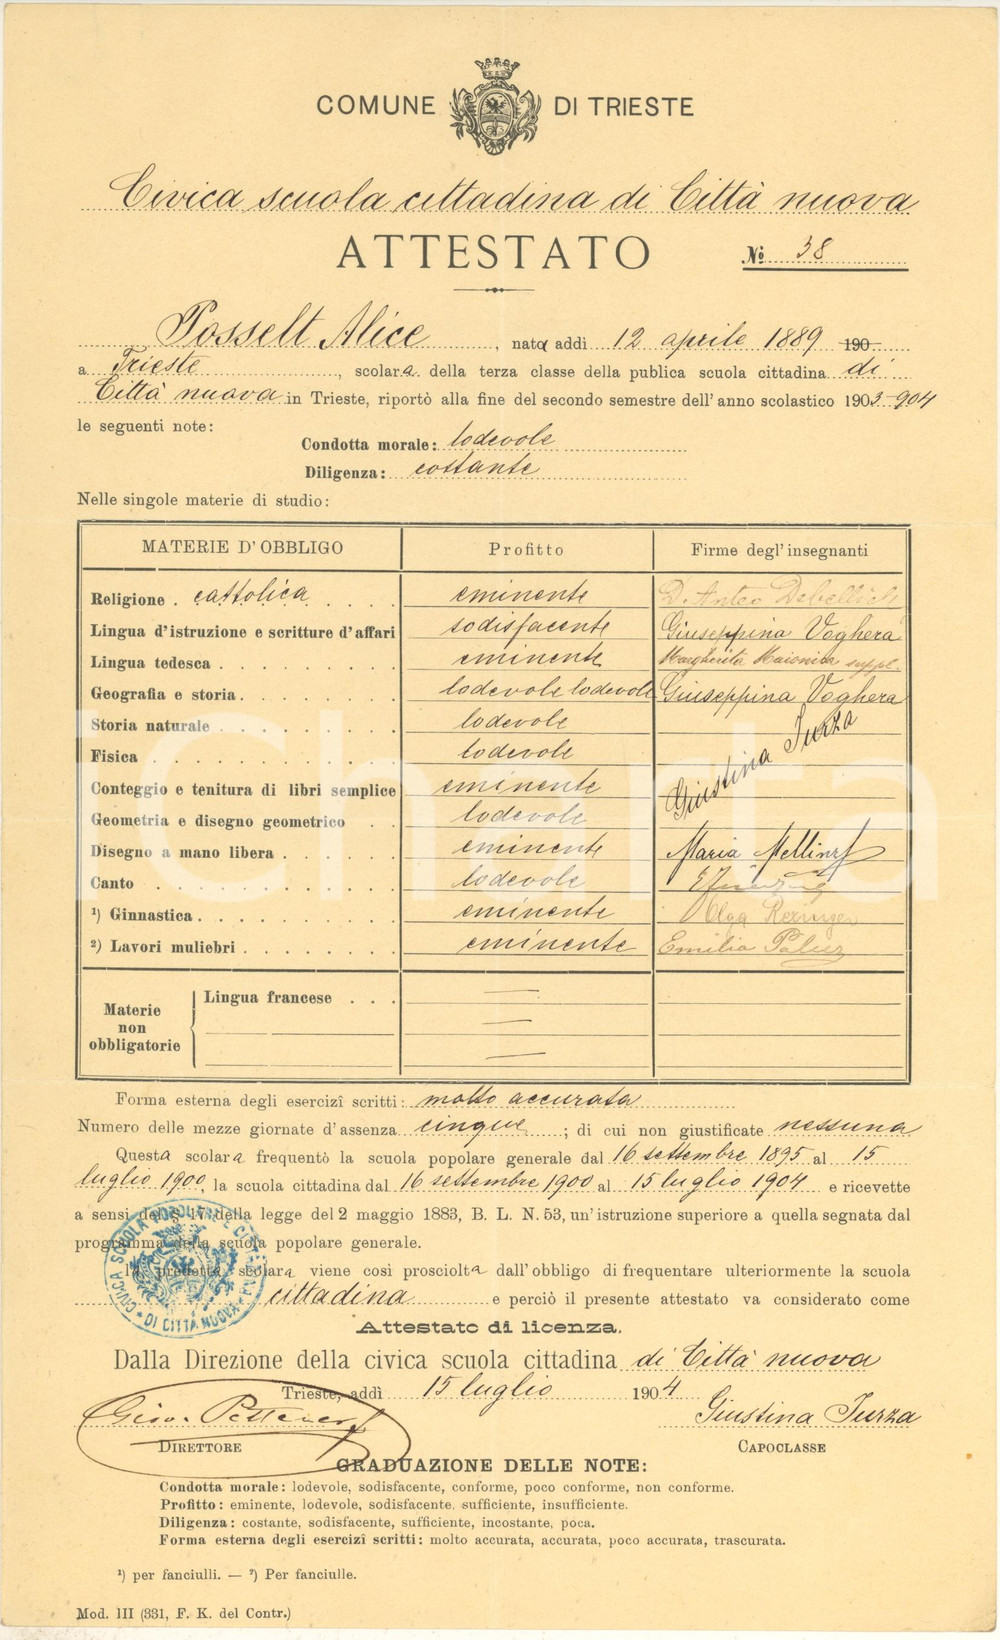 COMUNE DI TRIESTE
Civica scuola cittadina di Città nuova
ATTESTATO
№ 38
Posselt Alice, nata addì 12 aprile 1889 190
a Trieste, scolara della terza classe della pubblica scuola cittadina di
Città nuova in Trieste, riportò alla fine del secondo semestre dell'anno scolastico 1903-904
le seguenti note:
Condotta morale: lodevole
Diligenza: costante
Nelle singole materie di studio:
MATERIE D'OBBLIGO Profitto Firme degl'insegnanti
Religione cattolica eminente D. Anteo Debellich
Lingua d'istruzione e scritture d'affari sodisfacente Giuseppina Voghera
Lingua tedesca eminente Margherita Maionica suppl.
Geografia e storia lodevole lodevole Giuseppina Voghera
Storia naturale lodevole
Fisica lodevole Giustina Iurza
Conteggio e tenitura di libri semplice eminente
Geometria e disegno geometrico lodevole
Disegno a mano libera eminente Maria
Canto lodevole
¹) Ginnastica eminente Olga
²) Lavori muliebri eminente Emilia
Materie non obbligatorie
Lingua francese
Forma esterna degli esercizî scritti: molto accurata
Numero delle mezze giornate d'assenza cinque; di cui non giustificate nessuna
Questa scolara frequentò la scuola popolare generale dal 16 settembre 1895 al 15
luglio 1900, la scuola cittadina dal 16 settembre 1900 al 15 luglio 1904 e ricevette
a sensi del § 17 della legge del 2 maggio 1883, B. L. N. 53, un'istruzione superiore a quella segnata dal
programma della scuola popolare generale.
La predetta scolara viene così prosciolta dall'obbligo di frequentare ulteriormente la scuola
cittadina e perciò il presente attestato va considerato come
Attestato di licenza.
CIVICA SCUOLA POPOLARE E CITTADINA
DI CITTÀ NUOVA
Dalla Direzione della civica scuola cittadina di Città nuova
Trieste, addì 15 luglio 1904
Giustina Iurza
DIRETTORE CAPOCLASSE
GRADUAZIONE DELLE NOTE:
Condotta morale: lodevole, sodisfacente, conforme, poco conforme, non conforme.
Profitto: eminente, lodevole, sodisfacente, sufficiente, insufficiente.
Diligenza: costante, sodisfacente, sufficiente, incostante, poca.
Forma esterna degli esercizî scritti: molto accurata, accurata, poco accurata, trascurata.
¹) per fanciulli. — ²) Per fanciulle.
Mod. III (331, F. K. del Contr.)
iCharta